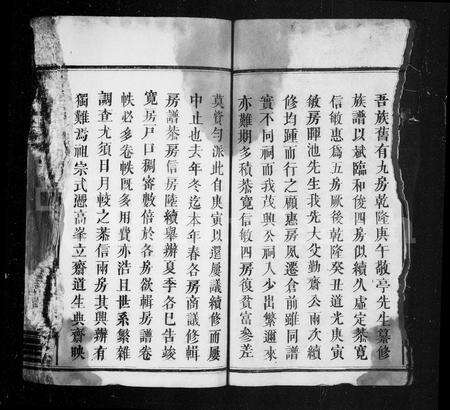 吾族舊有九房乾隆庚午敬亭先生纂修
族譜以斌臨和俊四房似續久虛定恭寬
信敏惠爲五房厥後乾隆癸丑道光庚寅
敏房暉池先生我先大父勤齋公兩次續
修均踵而行之顧惠房風遷倉前雖同譜
實不同祠而我茂興公祠人少出繁邇來
亦難期多積恭寬信敏四房復貧富參差
莫資勻派此自庚寅以還屢議續修而屢
中止也去年冬迄本年春各房商議修輯
房譜恭房信房陸續舉辦夏季各已告竣
寬房戸口稠密數倍於各房欲輯房譜卷
帙必多卷帙旣多用費亦浩且世系繁雜
調查尤須日月較之恭信兩房其興辦有
獨難焉祖宗式憑高峯立齋道生典齋映